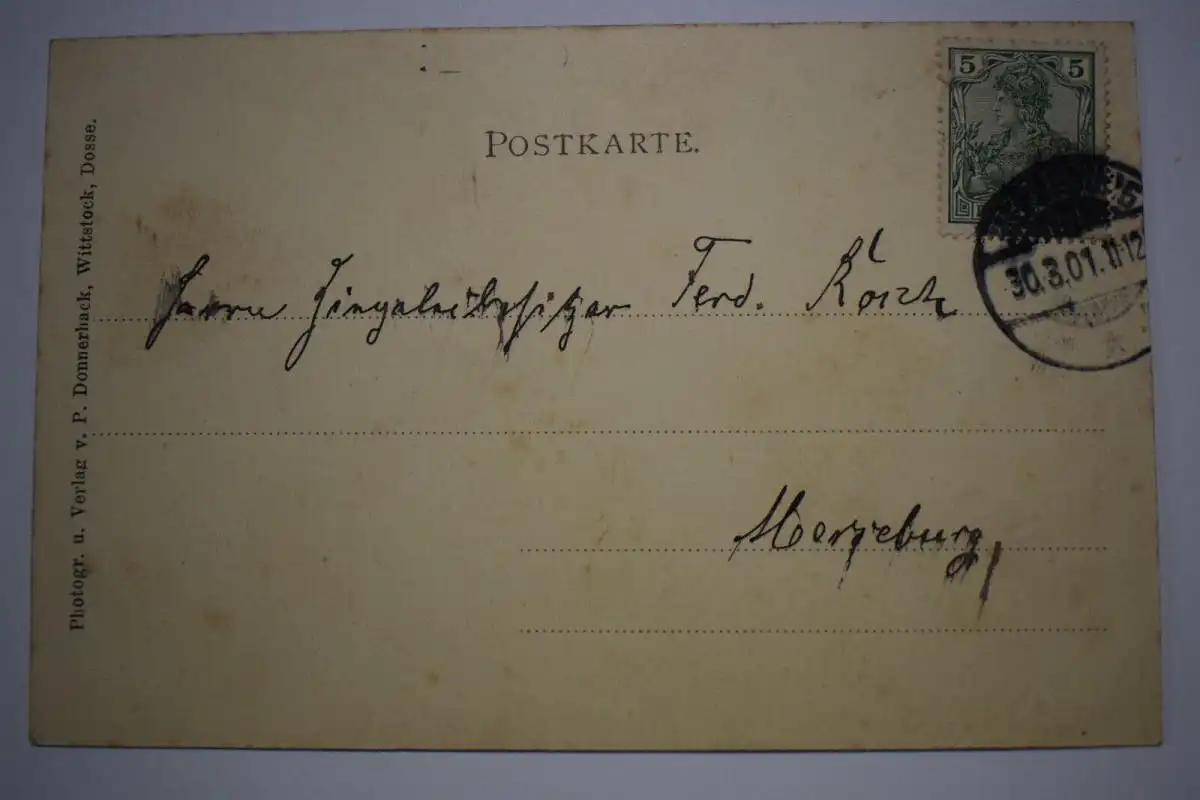 POSTKARTE.
5 5
30.3.01.11-12
Herrn Ziegeleibesitzer Ferd.
Merseburg,
Photogr. u. Verlag v. P. Donnerhack, Wittstock, Dosse.